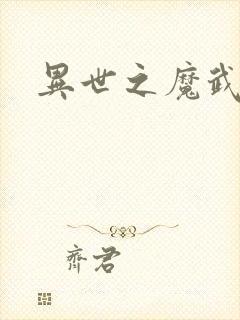 異世之魔武
齊君